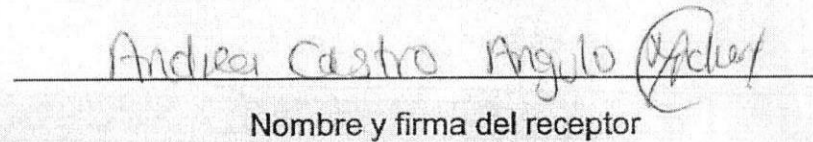 Andrea Castro Angulo
Nombre y firma del receptor